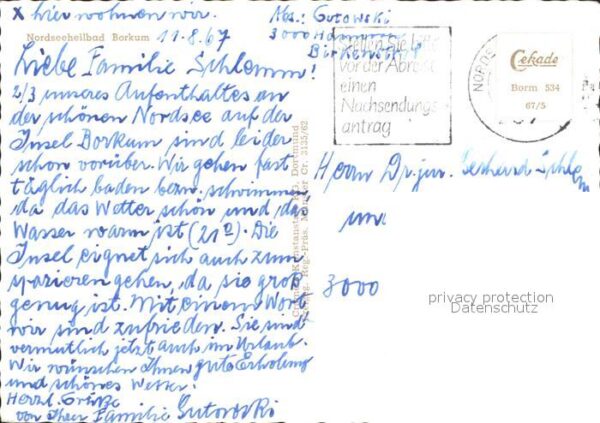 X hier wohnen wir.
Nordseeheilbad Borkum
11.8.67
Abs.: Gutowski
3000 Hannover
Birkenstr.
Liebe Familie Schlemm!
2/3 unseres Aufenthaltes an
der schönen Nordsee auf der
Insel Borkum sind leider
schon vorüber. Wir gehen fast
täglich baden bezw. schwimmen,
da das Wetter schön und das
Wasser warm ist (21°). Die
Insel eignet sich auch zum
spazieren gehen, da sie groß
genug ist. Mit einem Wort
wir sind zufrieden. Sie sind
vermutlich jetzt auch im Urlaub.
Wir wünschen Ihnen gute Erholung
und schönes Wetter.
Herzl. Grüße
von Ihrer Familie Gutowski
Stellen Sie
vor der Abreise
einen
Nachsendungs
antrag
NORDS
Cekade
Borm 534
67/5
Herrn Dr. jur. Gerhard Schlem
und
3000
privacy protection
Datenschutz